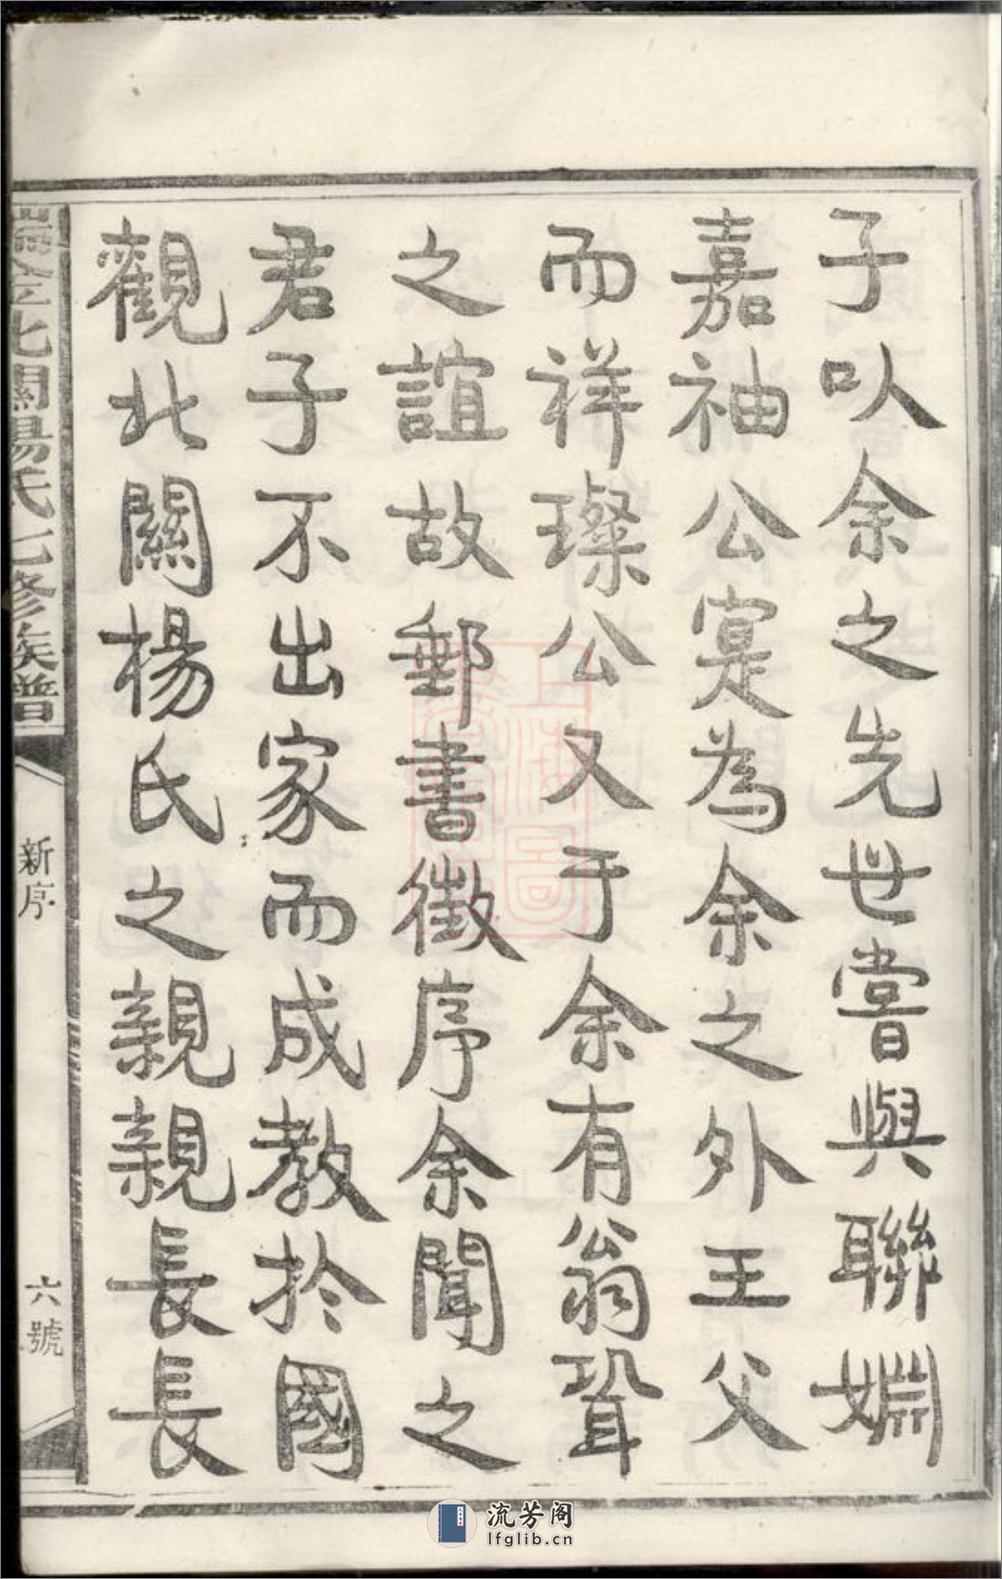 子以余之先世嘗與聯婣
嘉袖公寔為余之外王父
而祥璨公又于余有翁聓
之誼故郵書徵序余聞之
君子不出家而成教於國
觀北關楊氏之親親長長
瑞金北關楊氏七修族譜
新序
六號
流芳阁
lfglib.cn